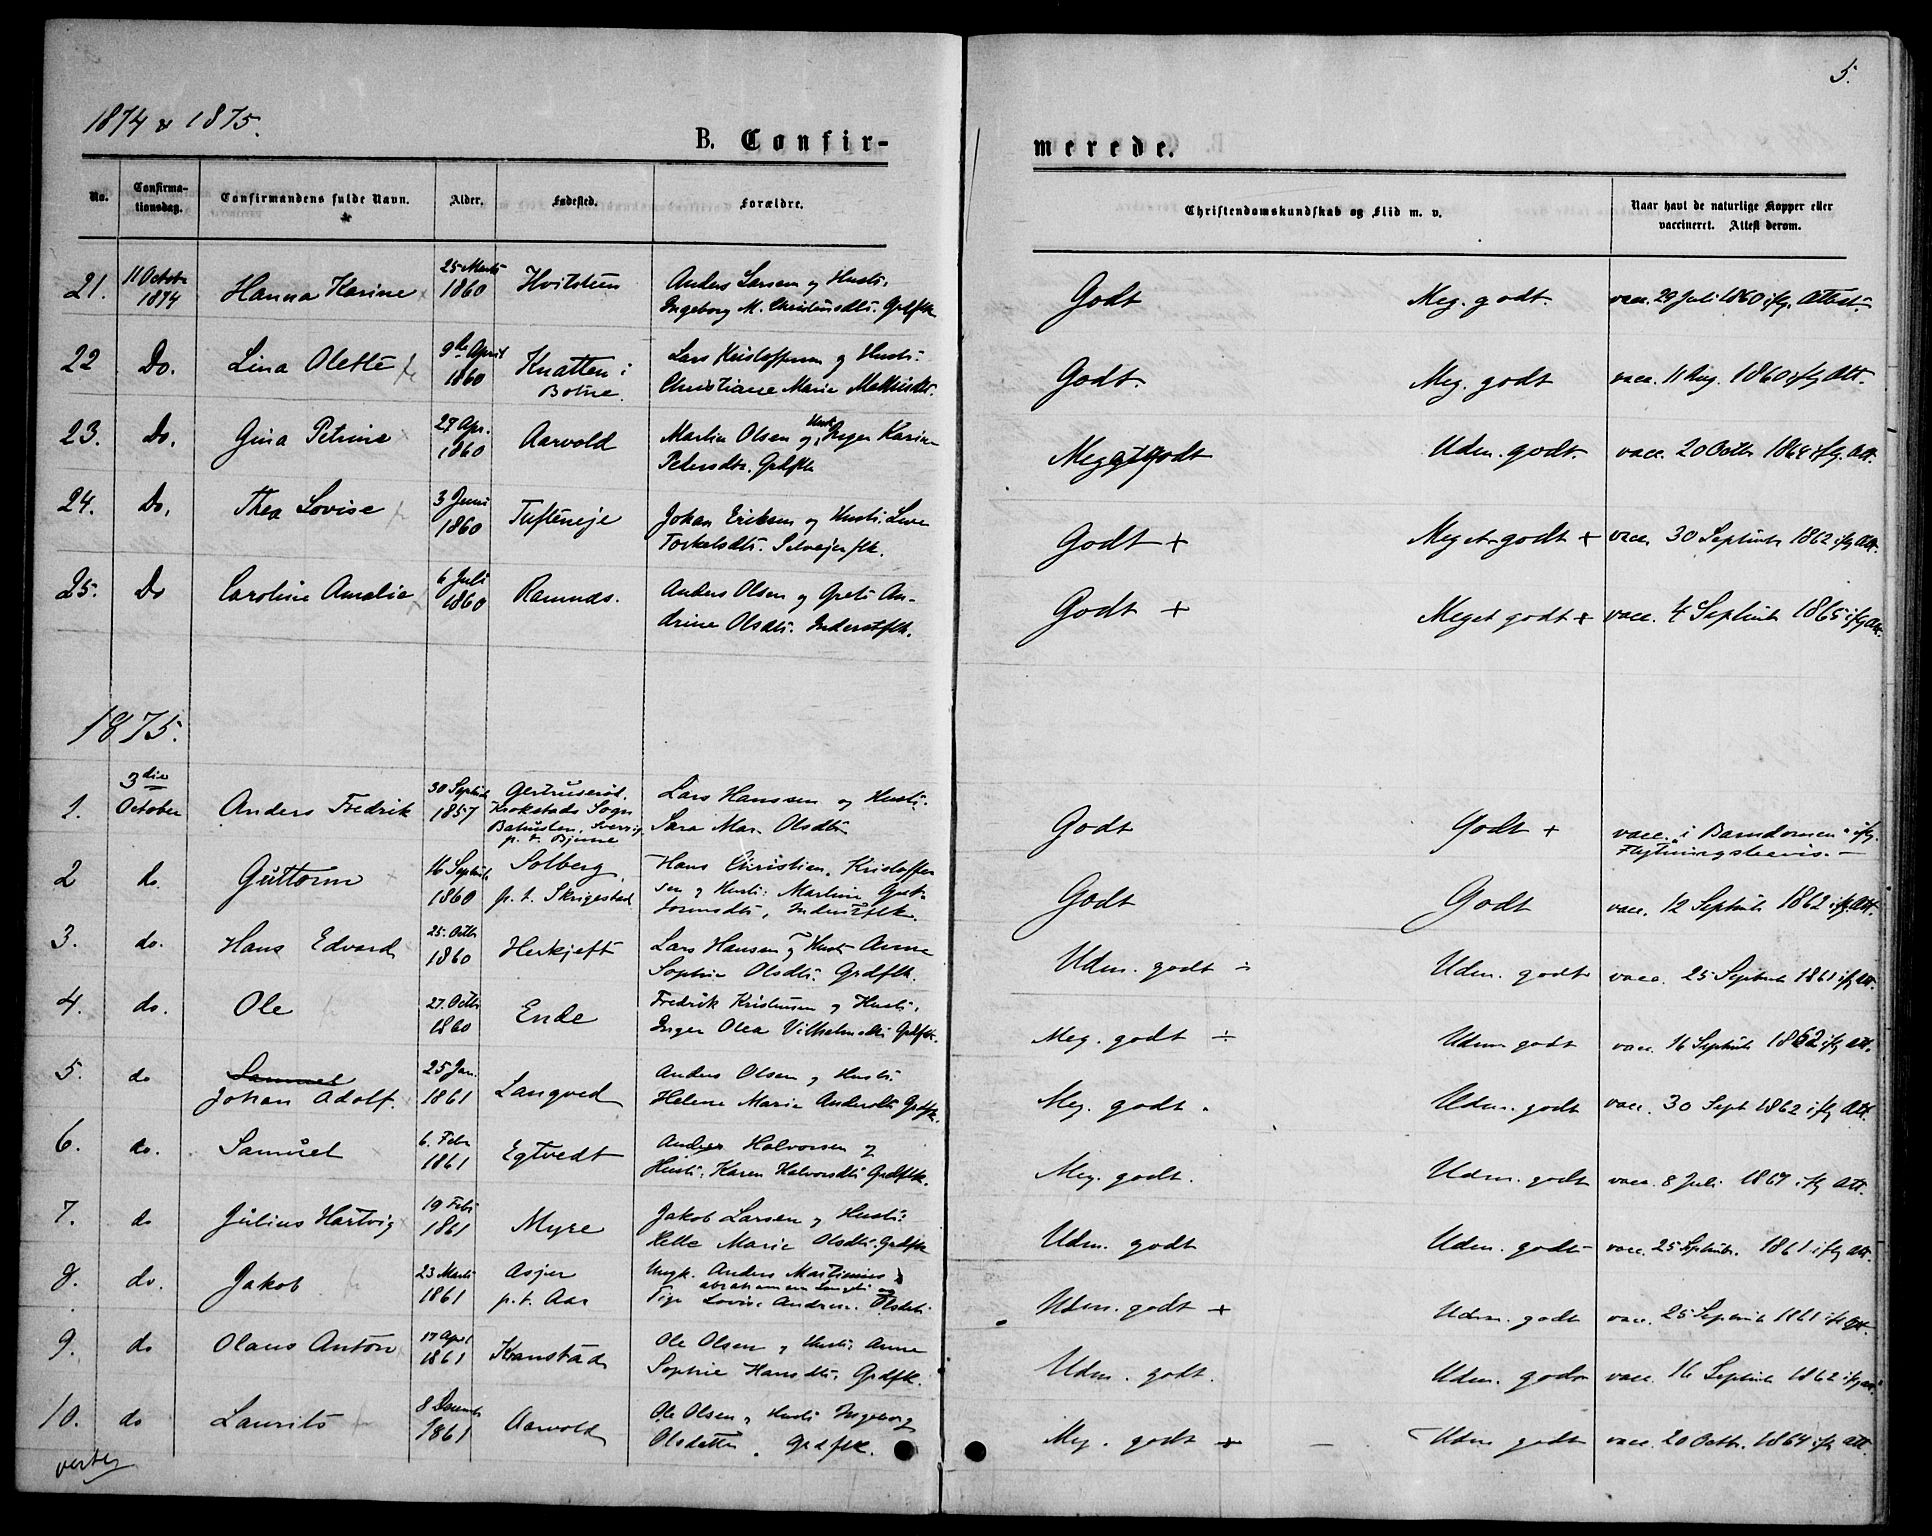 1874 & 1875.
5.
B. Confir-
merede.
No.
Confirma-
tionsdag.
Confirmandens fulde Navn.
Alder.
Fødested.
Forældre.
Christendomskundskab og Flid m. v.
Naar havt de naturlige Kopper eller
vaccineret. Attest derom.
21. 11 Octobr 1874 Hanna Karine 25 Marts 1860 Hvitsteen Anders Larsen og Hustr.
Ingeborg M. Christensdtr. Grdflk Godt Meg. godt. vacc. 29 Juli 1860 ifg. Attest.
22 Do. Lina Olette 9de April 1860 Knatten i Botne. Lars Kristoffersen og Hustr.
Christiane Marie Godt. Meg. godt vacc. 11 Aug. 1860 ifg Att.
23. Do. Gina Petrine 27 Apr. 1860 Aarvold Martin Olsen og Hustr. Inger Karine
Petersdtr. Grdflk Meget godt Udm. godt. vacc. 20 Octbr 1864 ifg. Att.
24. Do. Thea Lovise 3 Juni 1860 Tufteneje Johan Eriksen og Hustr.
Torkelsdtr. Selvejerflk. Godt + Meget godt + vacc. 30 Septemb 1862 ifg Att.
25. Do Caroline Amalie 6 Juli 1860 Ramnds. Anders Olsen og Grete An-
drine Olsdtr. Inderstflk. Godt + Meget godt + vacc. 4 Septemb 1865 ifg Att.
1875.
1. 3die October Anders Fredrik 30 Septemb 1857 Gertruserød, Krokstads Sogn
Bahuslen, Sverrig p. t. Bjerne Lars Hanssen og Hustr.
Sara Mar. Olsdtr Godt Godt + vacc. "i Barndomen" ifg.
Flytningsbevis. -
2 do. Guttorm 16 Septemb 1860 Solberg, p. t. Skrigestad Hans Christian Kristoffer
sen og Hustr: Martine Gut-
tormsdtr, Inderstflk. Godt Godt vacc. 12 Septemb 1862 ifg. Att.
3. do. Hans Edvard 25. Octbr 1860 Herkjeft Lars Hansen og Hustr Anne
Sophie Olsdtr. Grdflk. Udm. godt ÷ Udm. godt vacc. 25 Septemb 1861 ifg Att.
4. do. Ole 27. Octbr 1860 Ende Fredrik Kristensen og Hustr.
Inger Olea Vilhelmsdtr Grdflk. Meg. godt ÷ Udm godt vacc. 16 Septemb 1862 ifg Att.
5. do Samuel
Johan Adolf. 25 Jan. 1861 Langved Anders Olsen og Hustr.
Helene Marie Andersdtr Grdflk. Meg. godt. Udm. godt vacc. 30 Sept 1862 ifg Att.
6. do. Samuel 6. Febr 1861 Egtvedt Andreas Halvorsen og
Hustr. Karen Halvorsdtr Grdflk. Meg. godt. Udm. godt vacc. 8 Juli 1867 ifg Att.
7. do Julius Hartvig 19 Febr 1861 Myre Jakob Larsen og Hustr:
Marie Olsdtr. Grdflk Udm. godt Udm. godt vacc. 25 Septemb. 1861 ifg Att.
8. do. Jakob 23 Marts 1861 Asjer p. t. Aas Ungk. Anders Martinius
Abrahamsen og
Pige Lovise Andrea Olsdtr. Udm. godt + Udm. godt vacc. 25 Septemb 1861 ifg Att.
9. do Olaus Anton 17 April 1861 Kranstad Ole Olsen og Hustr: Anne
Sophie Hansdtr. Grdflk. Udm. godt. Udm. godt vacc. 16 Septemb 1862 ifg Att
10. do Laurits 8 Decemb 1861 Aarvold Ole Olsen og Hustr Ingeborg
Olsdatter. Grdflk. Meg. godt + - Udm godt vacc. 20 Octbr. 1864 ifg Att.
verte